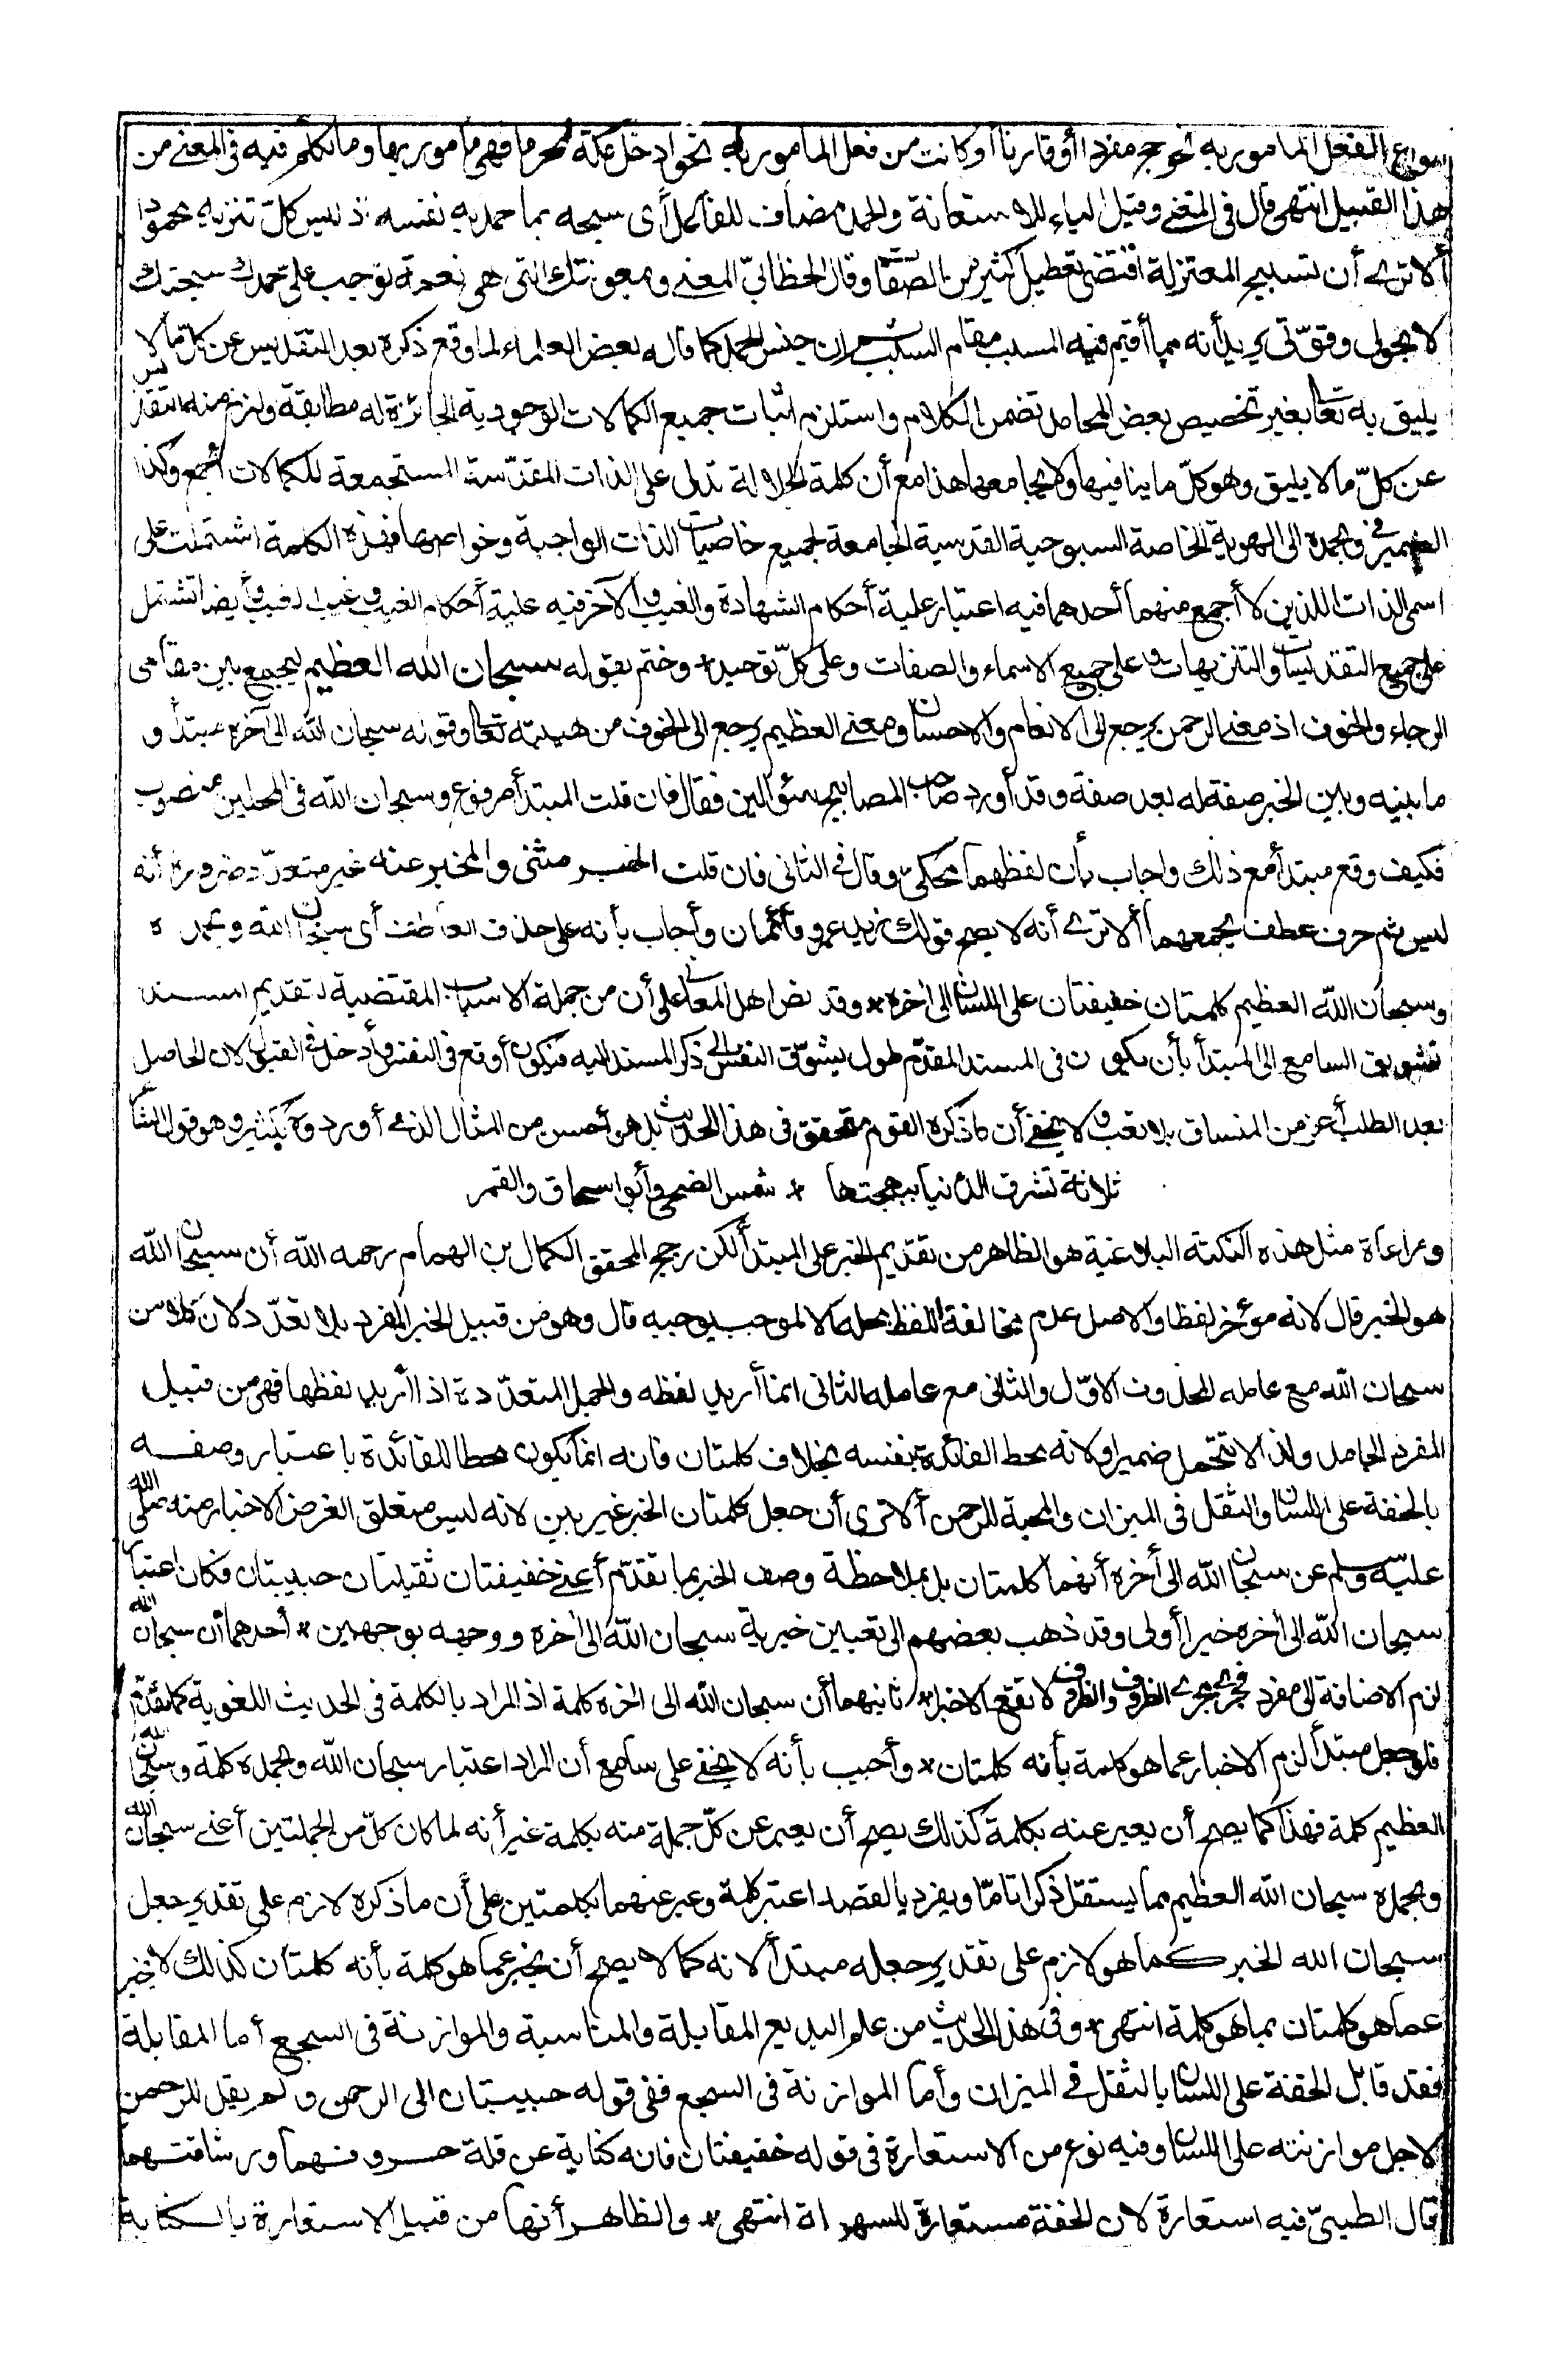 أنواع الفعل المأمور به نحو حج مفردا أو قارنا أو كانت من فعل المأمور به نحو ادخل مكة محرما فهي مأمور بها وما تكلم فيه في المغني من
هذا القبيل انتهى قال في المغني وقيل الباء للاستعانة والحمد مضاف للفاعل أي سبحه بما حمد به نفسه اذ ليس كل تنزيه محمودا
ألا ترى أن تسبيح المعتزلة اقتضى تعطيل كثير من الصفات وقال الخطابي المعنى وبمعونتك التي هي نعمة توجب علي حمدك سبحتك
لا بحولي وقوتي يريد أنه مما أقيم فيه المسبب مقام السبب ثم ان جنس الحمد كما قاله بعض العلماء لما وقع ذكره بعد التقديس عن كل ما لا
يليق به تعالى بغير تخصيص بعض المحامد تضمن الكلام واستلزم اثبات جميع الكمالات الوجودية الجائزة له مطابقة ولزم منه التقديس
عن كل ما لا يليق وهو كل ما ينافيها ولا يجامعها هذا مع أن كلمة الجلالة تدل على الذات المقدسة المستجمعة للكمالات أجمع وكذا
الضمير في وبحمده الى الهوية الخاصة السبوحية القدسية الجامعة لجميع خاصيات الذات الواجبة وخواصها فهذه الكلمة اشتملت على
اسمي الذات اللذين لا أجمع منهما أحدهما فيه اعتبار علية أحكام الشهادة والغيب والآخر فيه علية أحكام الغيب وغيب الغيب وأيضا تشتمل
على جميع التقديسات والتنزيهات وعلى جميع الاسماء والصفات وعلى كل توحيد * وختم بقوله سبحان الله العظيم ليجمع بين مقامي
الرجاء والخوف اذ معنى الرحمن يرجع الى الانعام والاحسان ومعنى العظيم يرجع الى الخوف من هيبته تعالى وقوله سبحان الله الى آخره مبتدأ و
ما بينه وبين الخبر صفة له بعد صفة وقد أورد صاحب المصابيح سؤالين فقال فان قلت المبتدأ مرفوع وسبحان الله في المحلين منصوب
فكيف وقع مبتدأ مع ذلك وأجاب بأن لفظهما محكي وقال في الثاني فان قلت الخبر مثنى والمخبر عنه غير متعدد ضرورة أنه
ليس ثم حرف عطف يجمعهما ألا ترى أنه لا يصح قولك زيد عمرو قائمان وأجاب بأنه على حذف العاطف أي سبحان الله وبحمده
وسبحان الله العظيم كلمتان خفيفتان على اللسان الى آخره * وقد نص أهل المعاني على أن من جملة الاسباب المقتضية لتقديم المسند
تشويق السامع الى المبتدأ بأن يكون في المسند المقدم طول يشوق النفس الى ذكر المسند اليه فيكون أوقع في النفس وأدخل في القبول لان الحاصل
بعد الطلب أعز من المنساق بلا تعب ولا يخفى أن ما ذكره القوم متحقق في هذا الحديث بل هو أحسن من المثال الذي أوردوه بكثير وهو قول الشاعر
ثلاثة تشرق الدنيا ببهجتها * شمس الضحى وأبو اسحاق والقمر
ومراعاة مثل هذه النكتة البلاغية هو الظاهر من تقديم الخبر على المبتدأ لكن رجح المحقق الكمال بن الهمام رحمه الله أن سبحان الله
هو الخبر قال لانه مؤخر لفظا والاصل عدم مخالفة اللفظ محله الا لموجب يوجبه قال وهو من قبيل الخبر المفرد بلا تعدد لان كلا من
سبحان الله مع عامله المحذوف الاول والثاني مع عامله الثاني انما أريد لفظه والجمل المتعددة اذا أريد لفظها فهي من قبيل
المفرد الجامد ولذا لا تتحمل ضميرا ولانه محط الفائدة بنفسه بخلاف كلمتان فانه انما يكون محطا للفائدة باعتبار وصفه
بالخفة على اللسان والثقل في الميزان والمحبة للرحمن ألا ترى أن جعل كلمتان الخبر غير بين لانه ليس متعلق الغرض الاخبار منه صلى الله
عليه وسلم عن سبحان الله الى آخره أنهما كلمتان بل بملاحظة وصف الخبر بما تقدم أعني خفيفتان ثقيلتان حبيبتان فكان اعتبار
سبحان الله الى آخره خبرا أولى وقد ذهب بعضهم الى تعيين خبرية سبحان الله الى آخره ووجهه بوجهين * أحدهما أن سبحان الله
لزم الاضافة الى مفرد فجرى مجرى الظروف والظروف لا تقع الا خبرا * ثانيهما أن سبحان الله الى آخره كلمة اذ المراد بالكلمة في الحديث اللغوية كما تقدم
فلو جعل مبتدأ لزم الاخبار عما هو كلمة بأنه كلمتان * وأجيب بأنه لا يخفى على سامع أن المراد اعتبار سبحان الله وبحمده كلمة وسبحان الله
العظيم كلمة فهذا كما يصح أن يعبر عنه بكلمة كذلك يصح أن يعبر عن كل جملة منه بكلمة غير أنه لما كان كل من الجملتين أعني سبحان الله
وبحمده سبحان الله العظيم مما يستقل ذكرا تاما ويفرد بالقصد اعتبر كلمة وعبر عنهما بكلمتين على أن ما ذكره لازم على تقدير جعل
سبحان الله الخبر كما هو لازم على تقدير جعله مبتدأ لانه كما لا يصح أن يخبر عما هو كلمة بأنه كلمتان كذلك لا يخبر
عما هو كلمتان بما هو كلمة انتهى * وفي هذا الحديث من علم البديع المقابلة والمناسبة والموازنة في السجع أما المقابلة
فقد قابل الخفة على اللسان بالثقل في الميزان وأما الموازنة في السجع ففي قوله حبيبتان الى الرحمن ولم يقل للرحمن
لاجل موازنته على اللسان وفيه نوع من الاستعارة في قوله خفيفتان فانه كناية عن قلة حروفهما ورشاقتهما
قال الطيبي فيه استعارة لان الخفة مستعارة للسهولة انتهى * والظاهر أنها من قبيل الاستعارة بالكناية